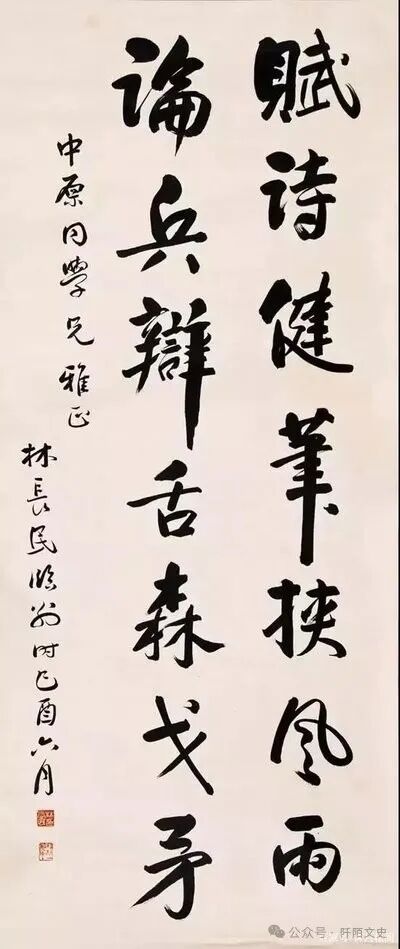 賦詩健筆挾風雨
論兵辯舌森戈矛
中原同學兄雅正
林長民臨別時己酉六月
公众号 · 阡陌文史